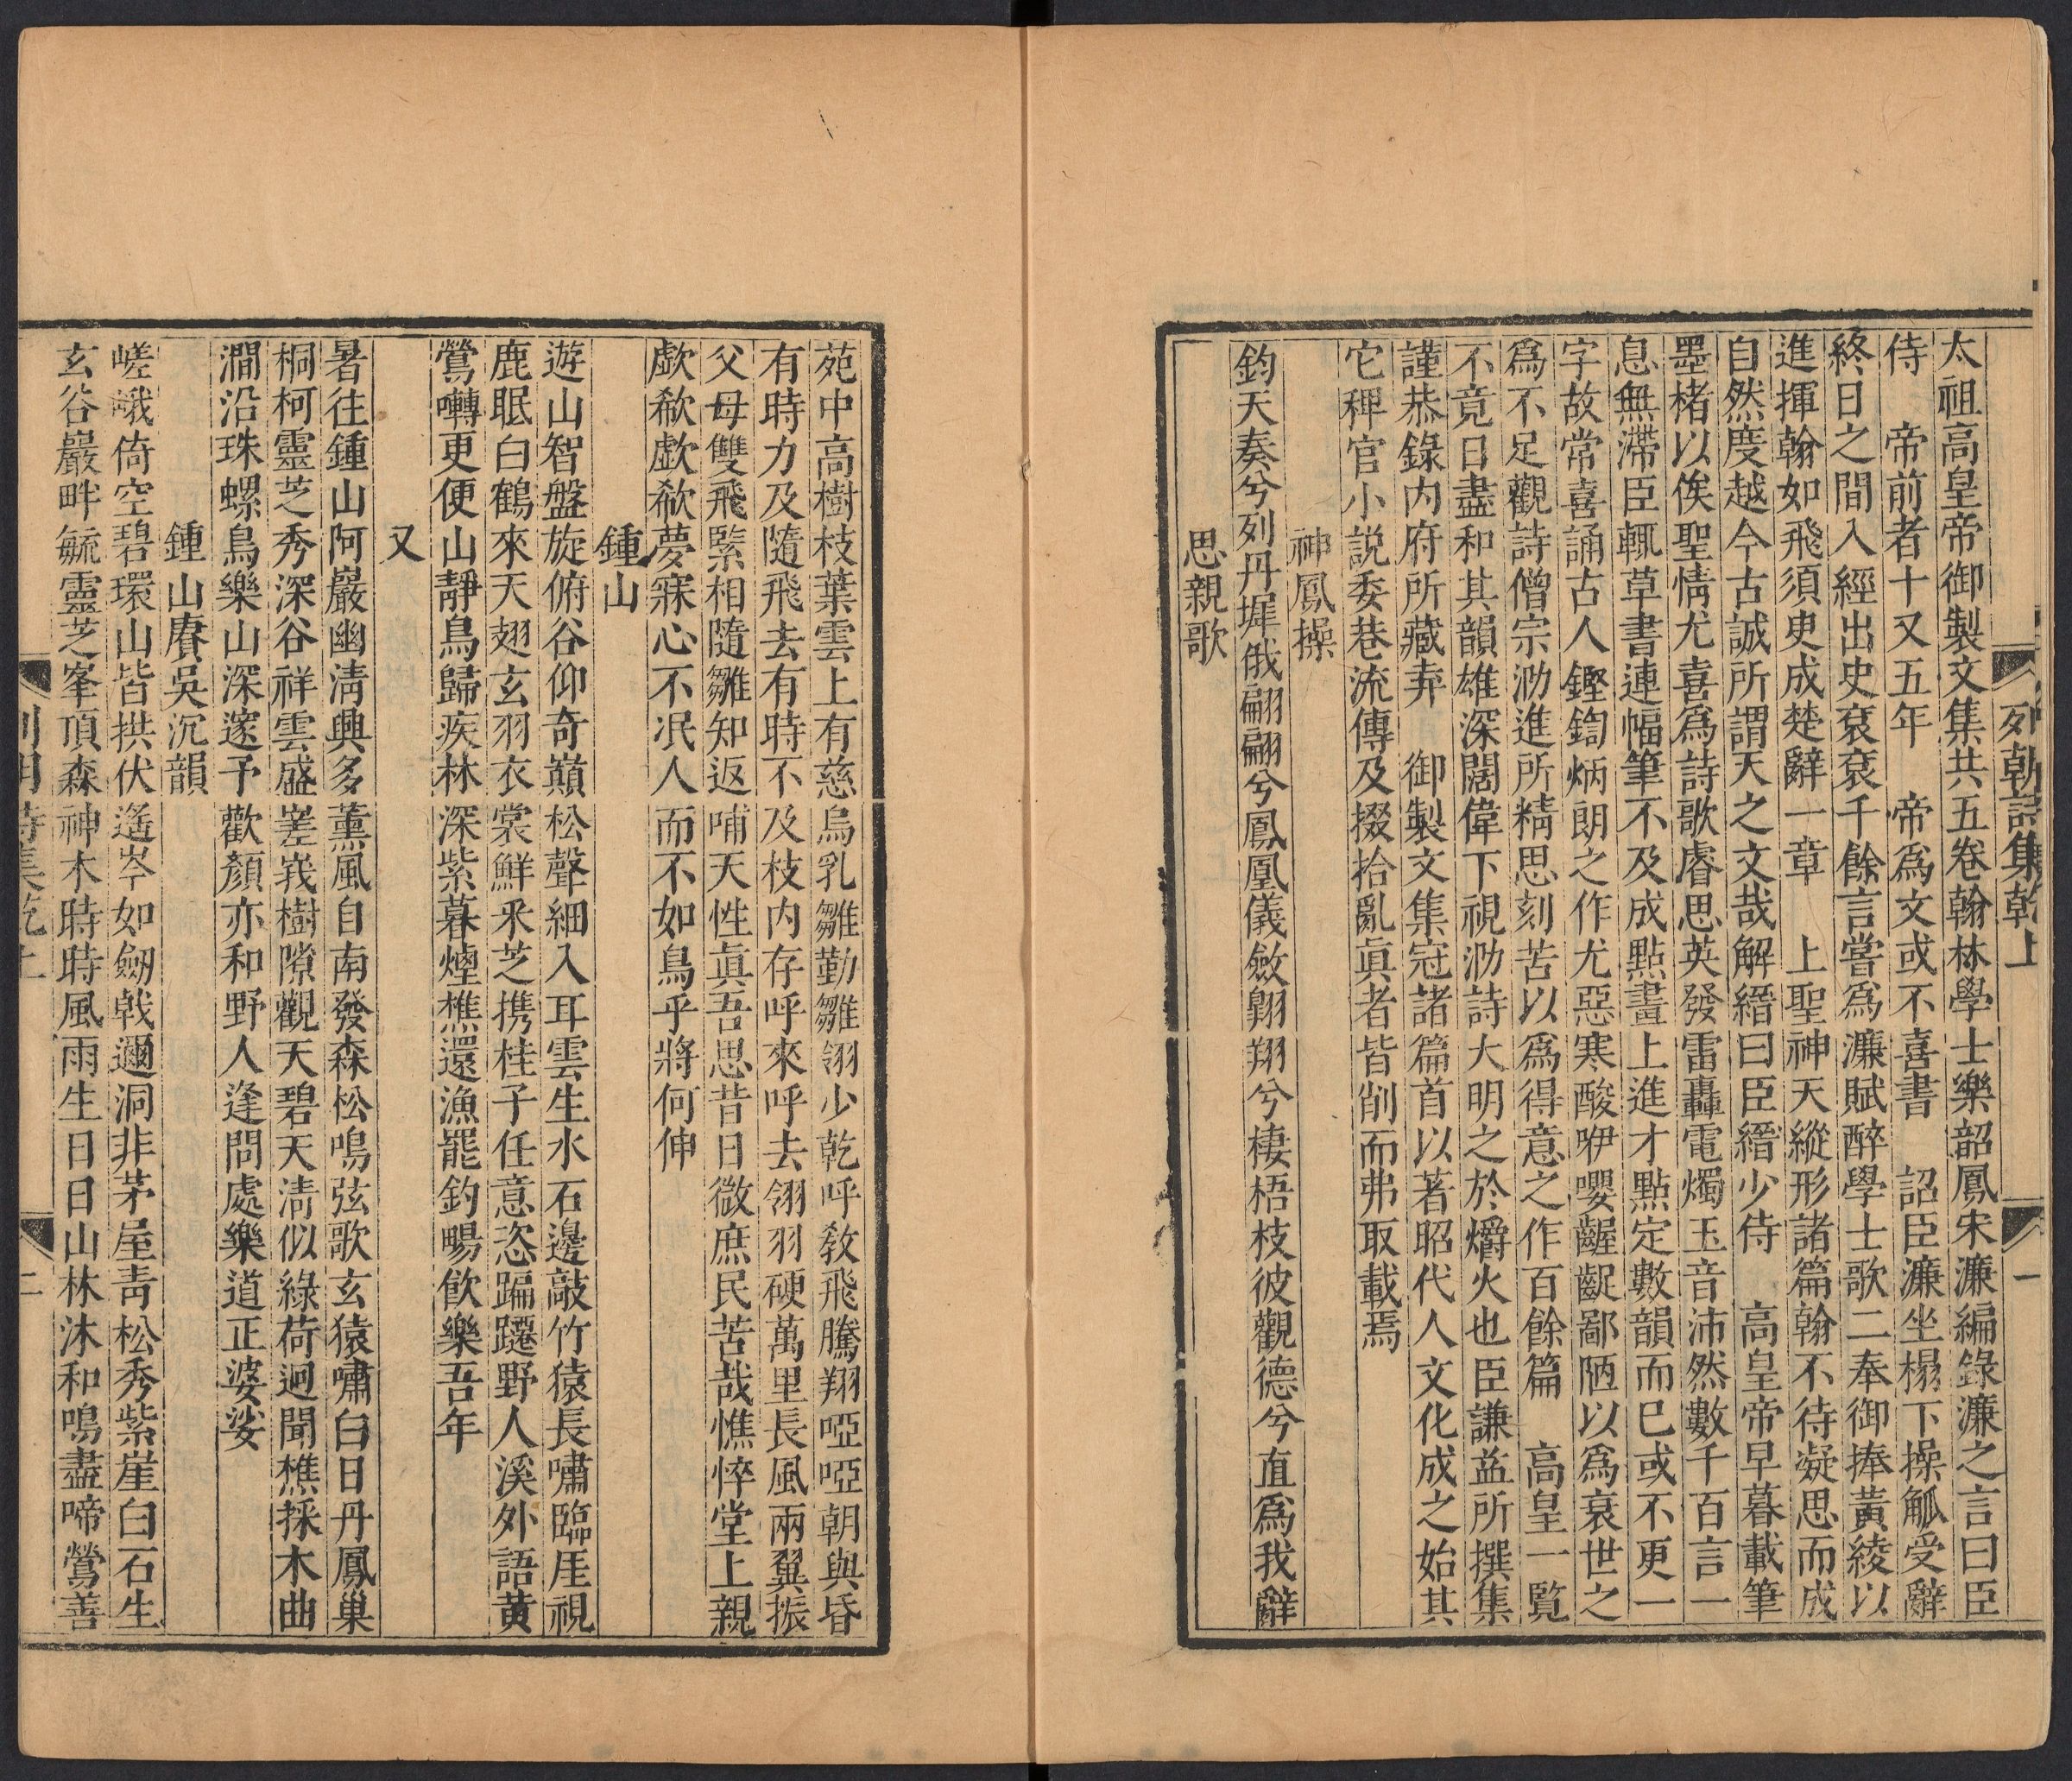 列朝詩集乾上
一
太祖高皇帝御製文集共五卷翰林學士樂韶鳳宋濂編錄濂之言曰臣
侍　帝前者十又五年　帝爲文或不喜書　詔臣濂坐榻下操觚受辭
終日之間入經出史袞袞千餘言嘗爲濂賦醉學士歌二奉御捧黃綾以
進揮翰如飛須臾成楚辭一章　上聖神天縱形諸篇翰不待凝思而成
自然度越今古誠所謂天之文哉解縉曰臣縉少侍　高皇帝早暮載筆
墨楮以俟聖情尤喜爲詩歌睿思英發雷轟電燭玉音沛然數千百言一
息無滯臣輒草書連幅筆不及成點畫上進才點定數韻而已或不更一
字故常喜誦古人鏗鍧炳朗之作尤惡寒酸咿嚶齷齪鄙陋以爲衰世之
爲不足觀詩僧宗泐進所精思刻苦以爲得意之作百餘篇　高皇一覽
不竟日盡和其韻雄深闊偉下視泐詩大明之於爝火也臣謙益所撰集
謹恭錄內府所藏弆　御製文集冠諸篇首以著昭代人文化成之始其
它稗官小說委巷流傳及掇拾亂眞者皆削而弗取載焉
神鳳操
鈞天奏兮列丹墀俄翩翩兮鳳凰儀斂翺翔兮棲梧枝彼觀德兮直爲我辭
思親歌
苑中高樹枝葉雲上有慈烏乳雛勤雛翎少乾呼教飛騰翔啞啞朝與昏
有時力及隨飛去有時不及枝內存呼來呼去翎羽硬萬里長風兩翼振
父母雙飛緊相隨雛知返哺天性眞吾思昔日微庶民苦哉憔悴堂上親
歔欷歔欷夢寐心不泯人而不如鳥乎將何伸
鍾山
遊山智盤旋俯谷仰奇巔松聲細入耳雲生水石邊敲竹猿長嘯臨厓視
鹿眠白鶴來天翅玄羽衣裳鮮釆芝携桂子任意恣蹁躚野人溪外語黃
鶯囀更便山靜鳥歸疾林深紫暮煙樵還漁罷釣暢飲樂吾年
又
暑往鍾山阿巖幽淸興多薰風自南發森松鳴弦歌玄猿嘯白日丹鳳巢
桐柯靈芝秀深谷祥雲盛嵳峩樹隙觀天碧天淸似綠荷迥聞樵採木曲
澗沿珠螺鳥樂山深邃予歡顏亦和野人逢問處樂樂道正婆娑
鍾山賡吳沉韻
嵯峨倚空碧環山皆拱伏遙岑如劔戟邇洞非茅屋靑松秀紫崖白石生
玄谷巖畔毓靈芝峯頂森神木時時風雨生日日山林沐和鳴盡啼鶯善
二